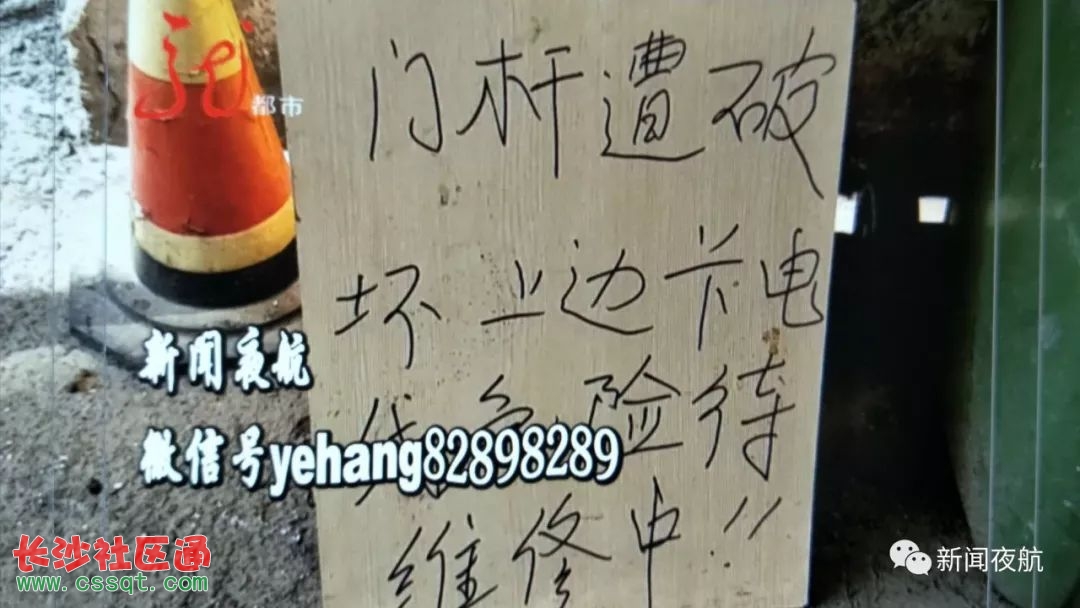 都市
门杆遭破
坏上边卡电
线危险待
维修中!!
新闻夜航
微信号yehang82898289
长沙社区通
www.cssqt.com
新闻夜航